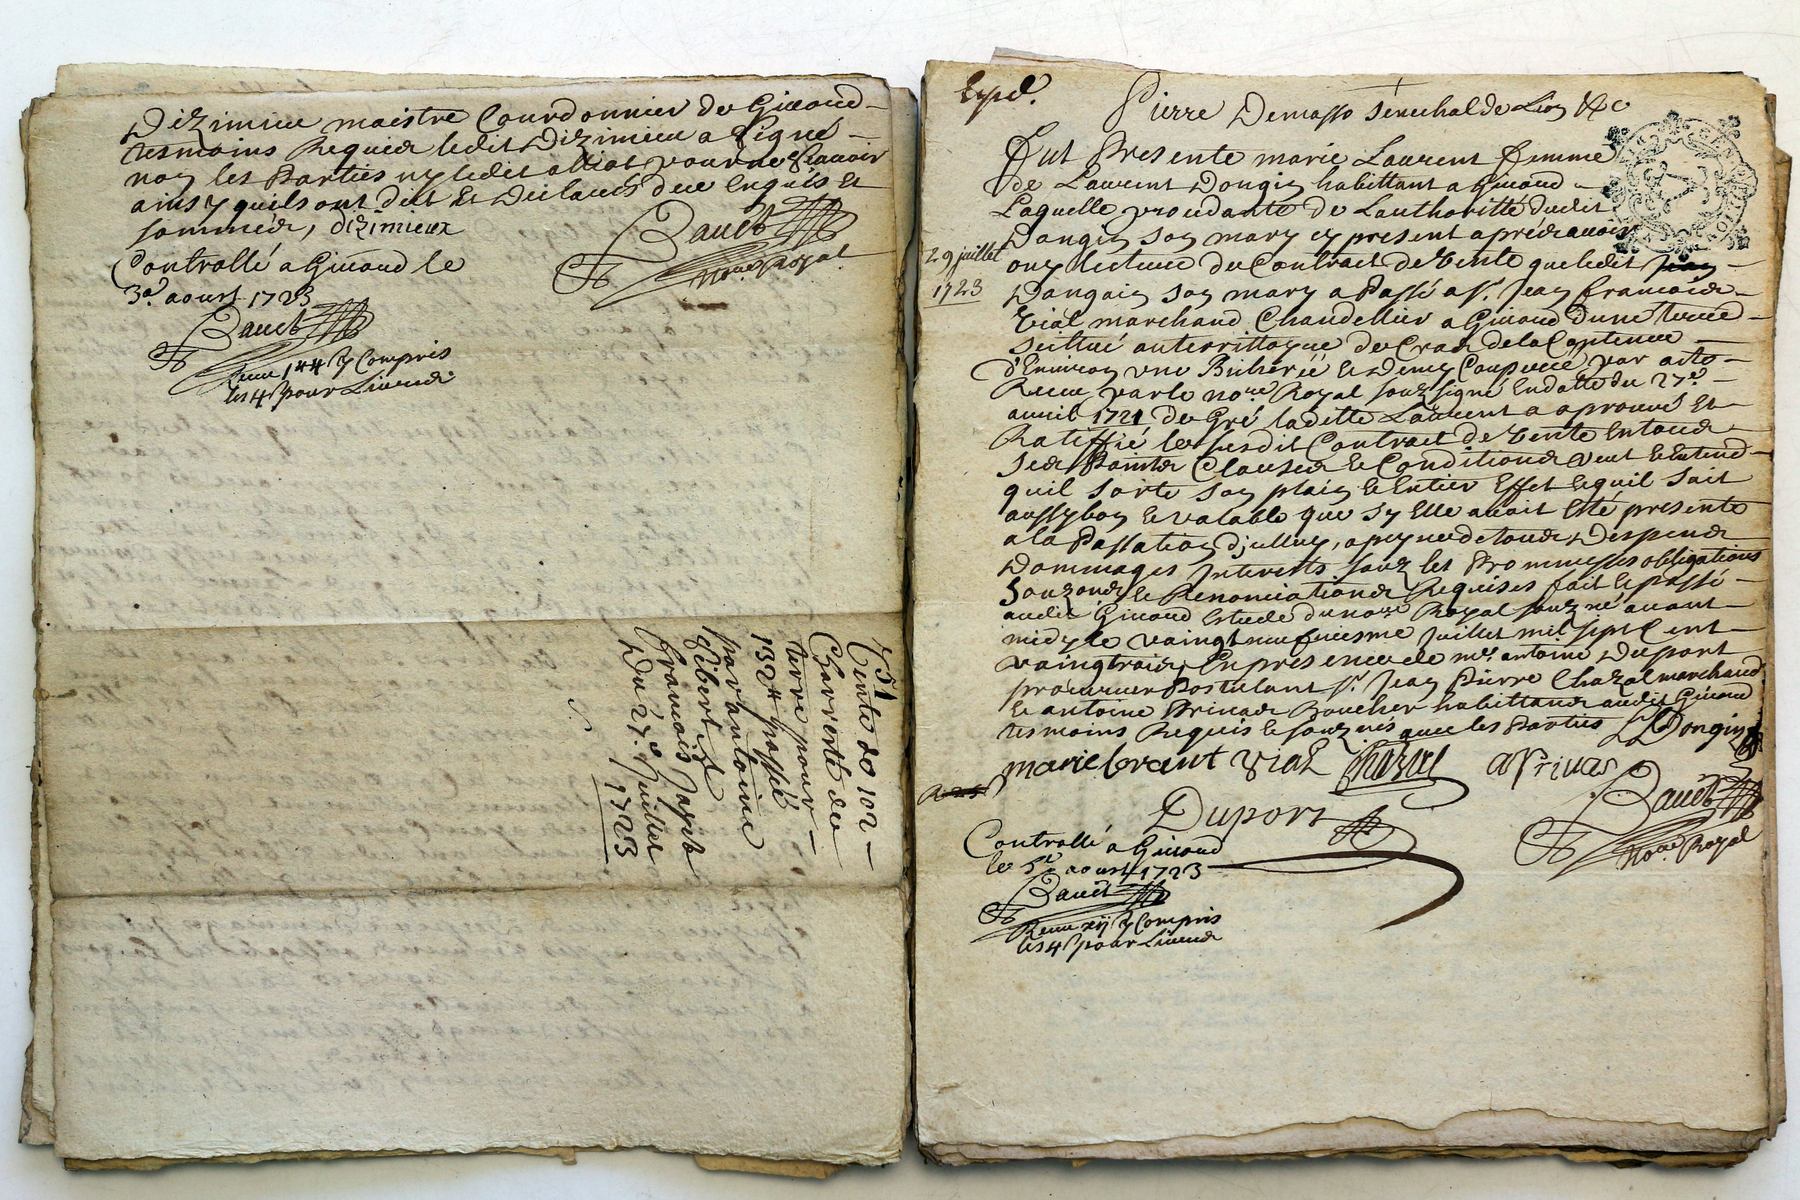 Dizimieu maistre Courdonnier de Giuord
tesmoins Requis ledit Dizimieu a signé
non les Parties ny ledit alliot pour ne sçauoir
ainsy quils ont dit et declaré deue enquis et
sommés, dizimieux
Bauet
no.re Royal
Controllé a Giuord le
3.e aoust 1723
Bauet
Receu 144 y Compris
les 4 pour Liures
751
Vente de 102
Charretée de
terre pour
132# passée
par antoine
Gibert a
francois
Du 27.e Juillet
1723
Expd.
Pierre Demasso senechal de Lion &c
29 juillet
1723
Fut Presente marie Laurent femme
de Laurent Dongin habittant a Giuord
Laquelle procedante de Lauthoritté dudit
Dongin son mary cy present apres auoir
ouy lecture du Contract de Vente que ledit
Dongin son mary a Passé a s.r Jean francois
Vial marchand Chandellier a Giuord dune terre
scittué au territtoyre de de la Contenue
d'Enuiron vne Bicheréé et demy Couppeé par acte
Receu par le no.re Royal souzsigné en datte du 27.e
auril 1721 de Gré laditte Laurent a aprouué et
Ratiffié le susdit Contract de Vente en tous
ses Points Clauses et Conditions veut et entend
quil sorte son plain et entier Effet et quil soit
aussy bon et valable que sy Elle auoit Esté presente
a la Passation dicelluy, a peyne de tous Despens
Dommages Interests souz les Promesses obligations
et Renonciations Requises fait et passé
audit Giuord Estude du no.re Royal souzné auant
midy le vaingtneufuiesme Juillet mil sept Cent
vaingtrois, En presence de m.e antoine Duport
procureur Postulant s.r Jean Pierre Chazal marchand
et antoine Priuas Boucher habittans audit Giuord
tesmoins Requis et souznés auec les Parties L Dongin
marie lorant Vial Chazal a Priuas
Duport
Bauet
no.re Royal
Controllé a Giuord
le 3.e aoust 1723
Bauet
Receu xij y Compris
les 4 pour Liures